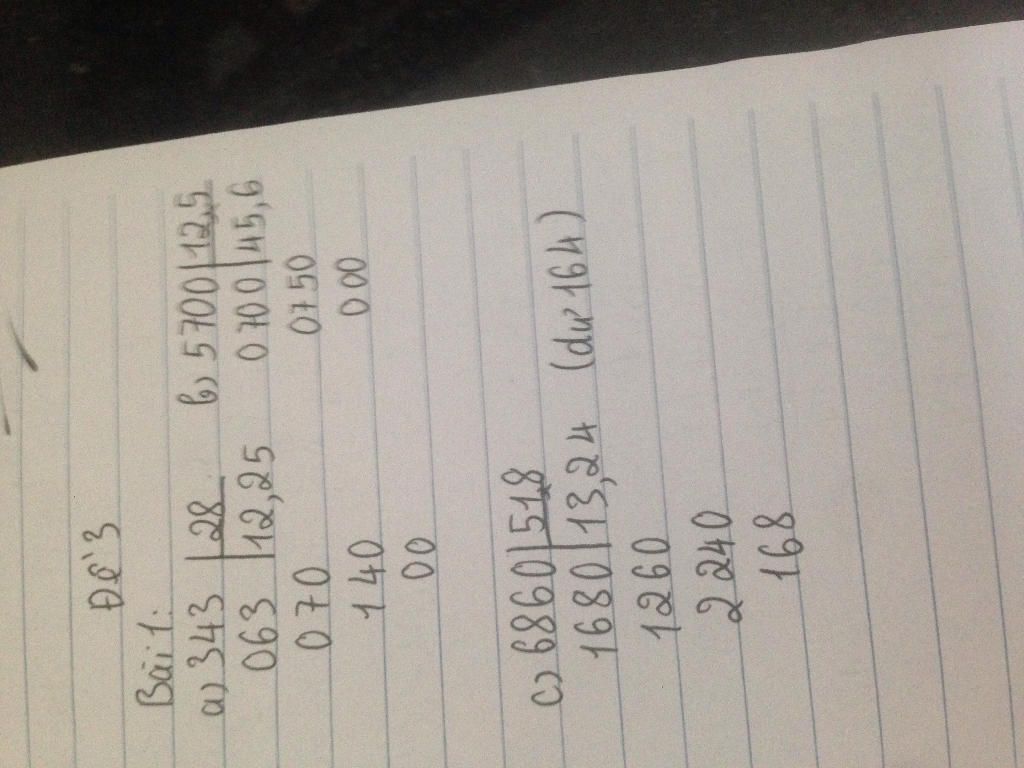 Đề 3
Bài 1:
a) 343 | 28 b) 5700 | 12,5
063 | 12,25 0700 | 45,6
070 0750
140 000
00
c) 6860 | 51,8
1680 | 13,24 (dư 164)
1260
2240
168